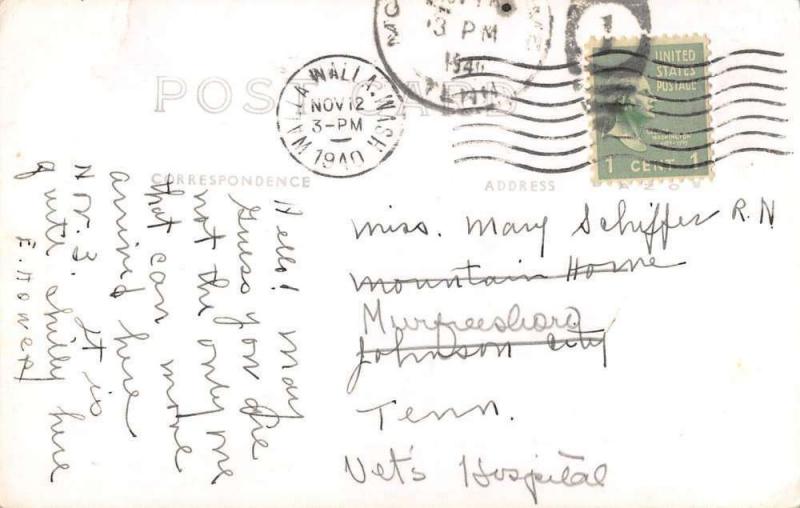 POST CARD
WALLA WALLA, WASH.
NOV 12
3-PM
1940
3 PM
1940
TENN
1
UNITED
STATES
POSTAGE
WASHINGTON
1 CENT 1
CORRESPONDENCE
ADDRESS
Hello! May
Guess you are
not the only one
that can move
arrived here
Nov. 3. It is
quite chilly here
Miss. Mary Schiffer R.N
Mountain Home
Murfreesboro
Johnson City
Tenn.
Vet's Hospital